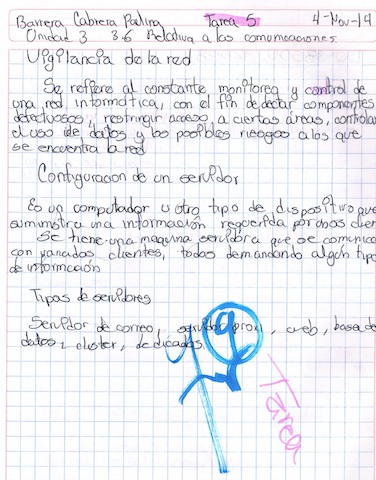 Barrera Cabrera Paulina Tarea 5 4-Nov-14
Unidad 3 3.6 Relativa a las comunicaciones.
Vigilancia de la red
Se refiere al constante monitoreo y control de
una red informática, con el fin de dectar componentes
defectuosos, restringir acceso a ciertas áreas, controlar
el uso de datos y los posibles riesgos a los que
se encuentra la red.
Configuracion de un servidor
Es un computador u otro tipo de dispositivo que
suministra una información requerida por unos clien
Se tiene una maquina servidora que se comunica
con variados clientes, todos demandando algún tipo
de información.
Tipos de servidores
Servidor de correo, servidor proxi, web, base de
datos, cluster, dedicados.
9
Tarea